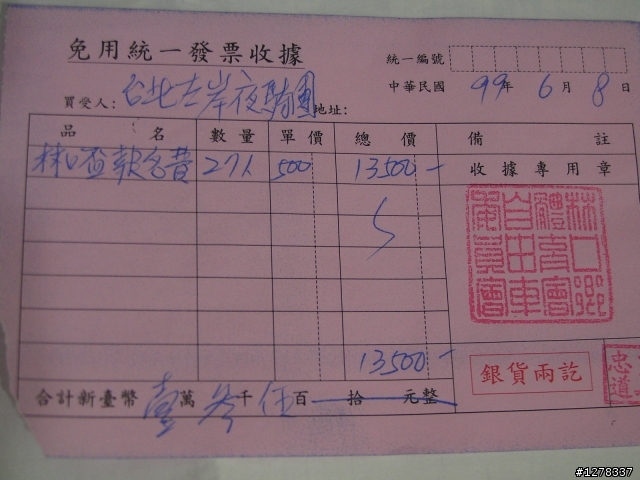 免用統一發票收據
統一編號
中華民國 99年 6月 8日
買受人: 台北左岸夜騎團 地址:
品名 數量 單價 總價 備註
林口盃報名費 27人 500 13500- 收據專用章
林口鄉體育會自由車委員會
13500-
銀貨兩訖
忠道
合計新臺幣 壹萬 參千 伍百 拾 元整
#1278337